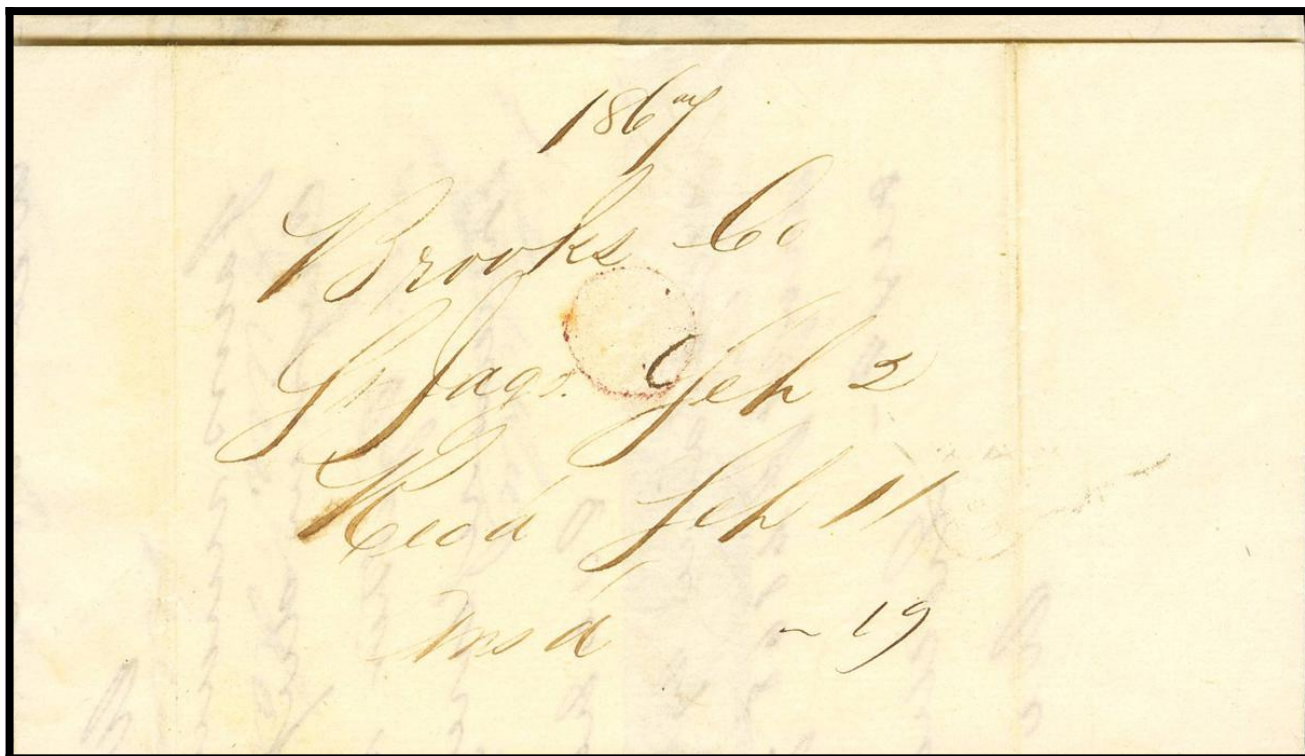 1867
Brooks Co
St Jago. Feb 2
Recd Feb 11
Ansd " 19